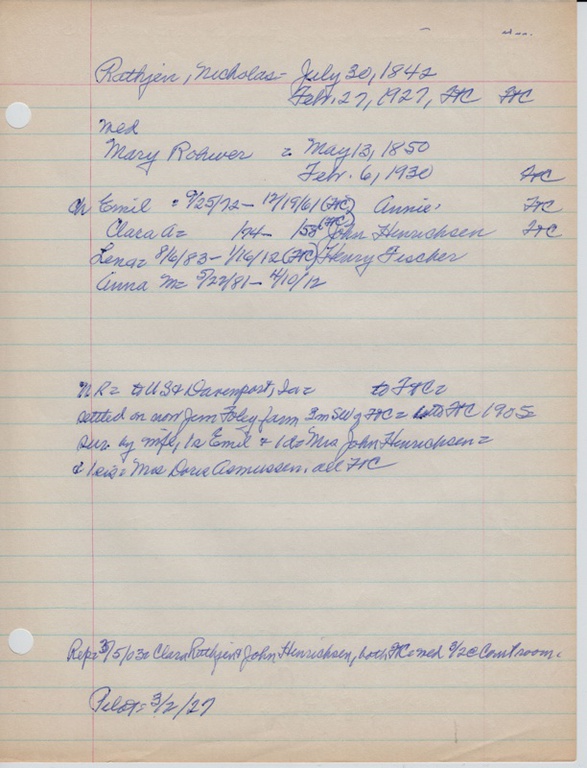 Rathjen, Nicholas = July 30, 1842
Feb. 27, 1927, FtC FtC
med
Mary Rohwer = May 13, 1850
Feb. 6, 1930 FtC
Ch Emil = 9/25/72 - 12/19/61 (FtC) Annie, FtC
Clara A = 1/74 - 1/58 (FtC) John Hinrichsen FtC
Lena = 8/6/83 - 1/16/12 (FtC) Henry Fischer
Anna M = 5/22/81 - 4/10/12
NR = to US & Davenport, Ia = to FtC =
settled on now Jim Foley farm 3m SW of FtC = to FtC 1905 =
sur. by wife, 1s Emil & 1d = Mrs John Henrichsen =
& 1 sis = Mrs Doris Asmussen, all FtC
Rep = 3/5/03 = Clara Rathjen & John Henrichsen, both FtC = med 3/2 @ Courtroom.
Pilot = 3/2/27